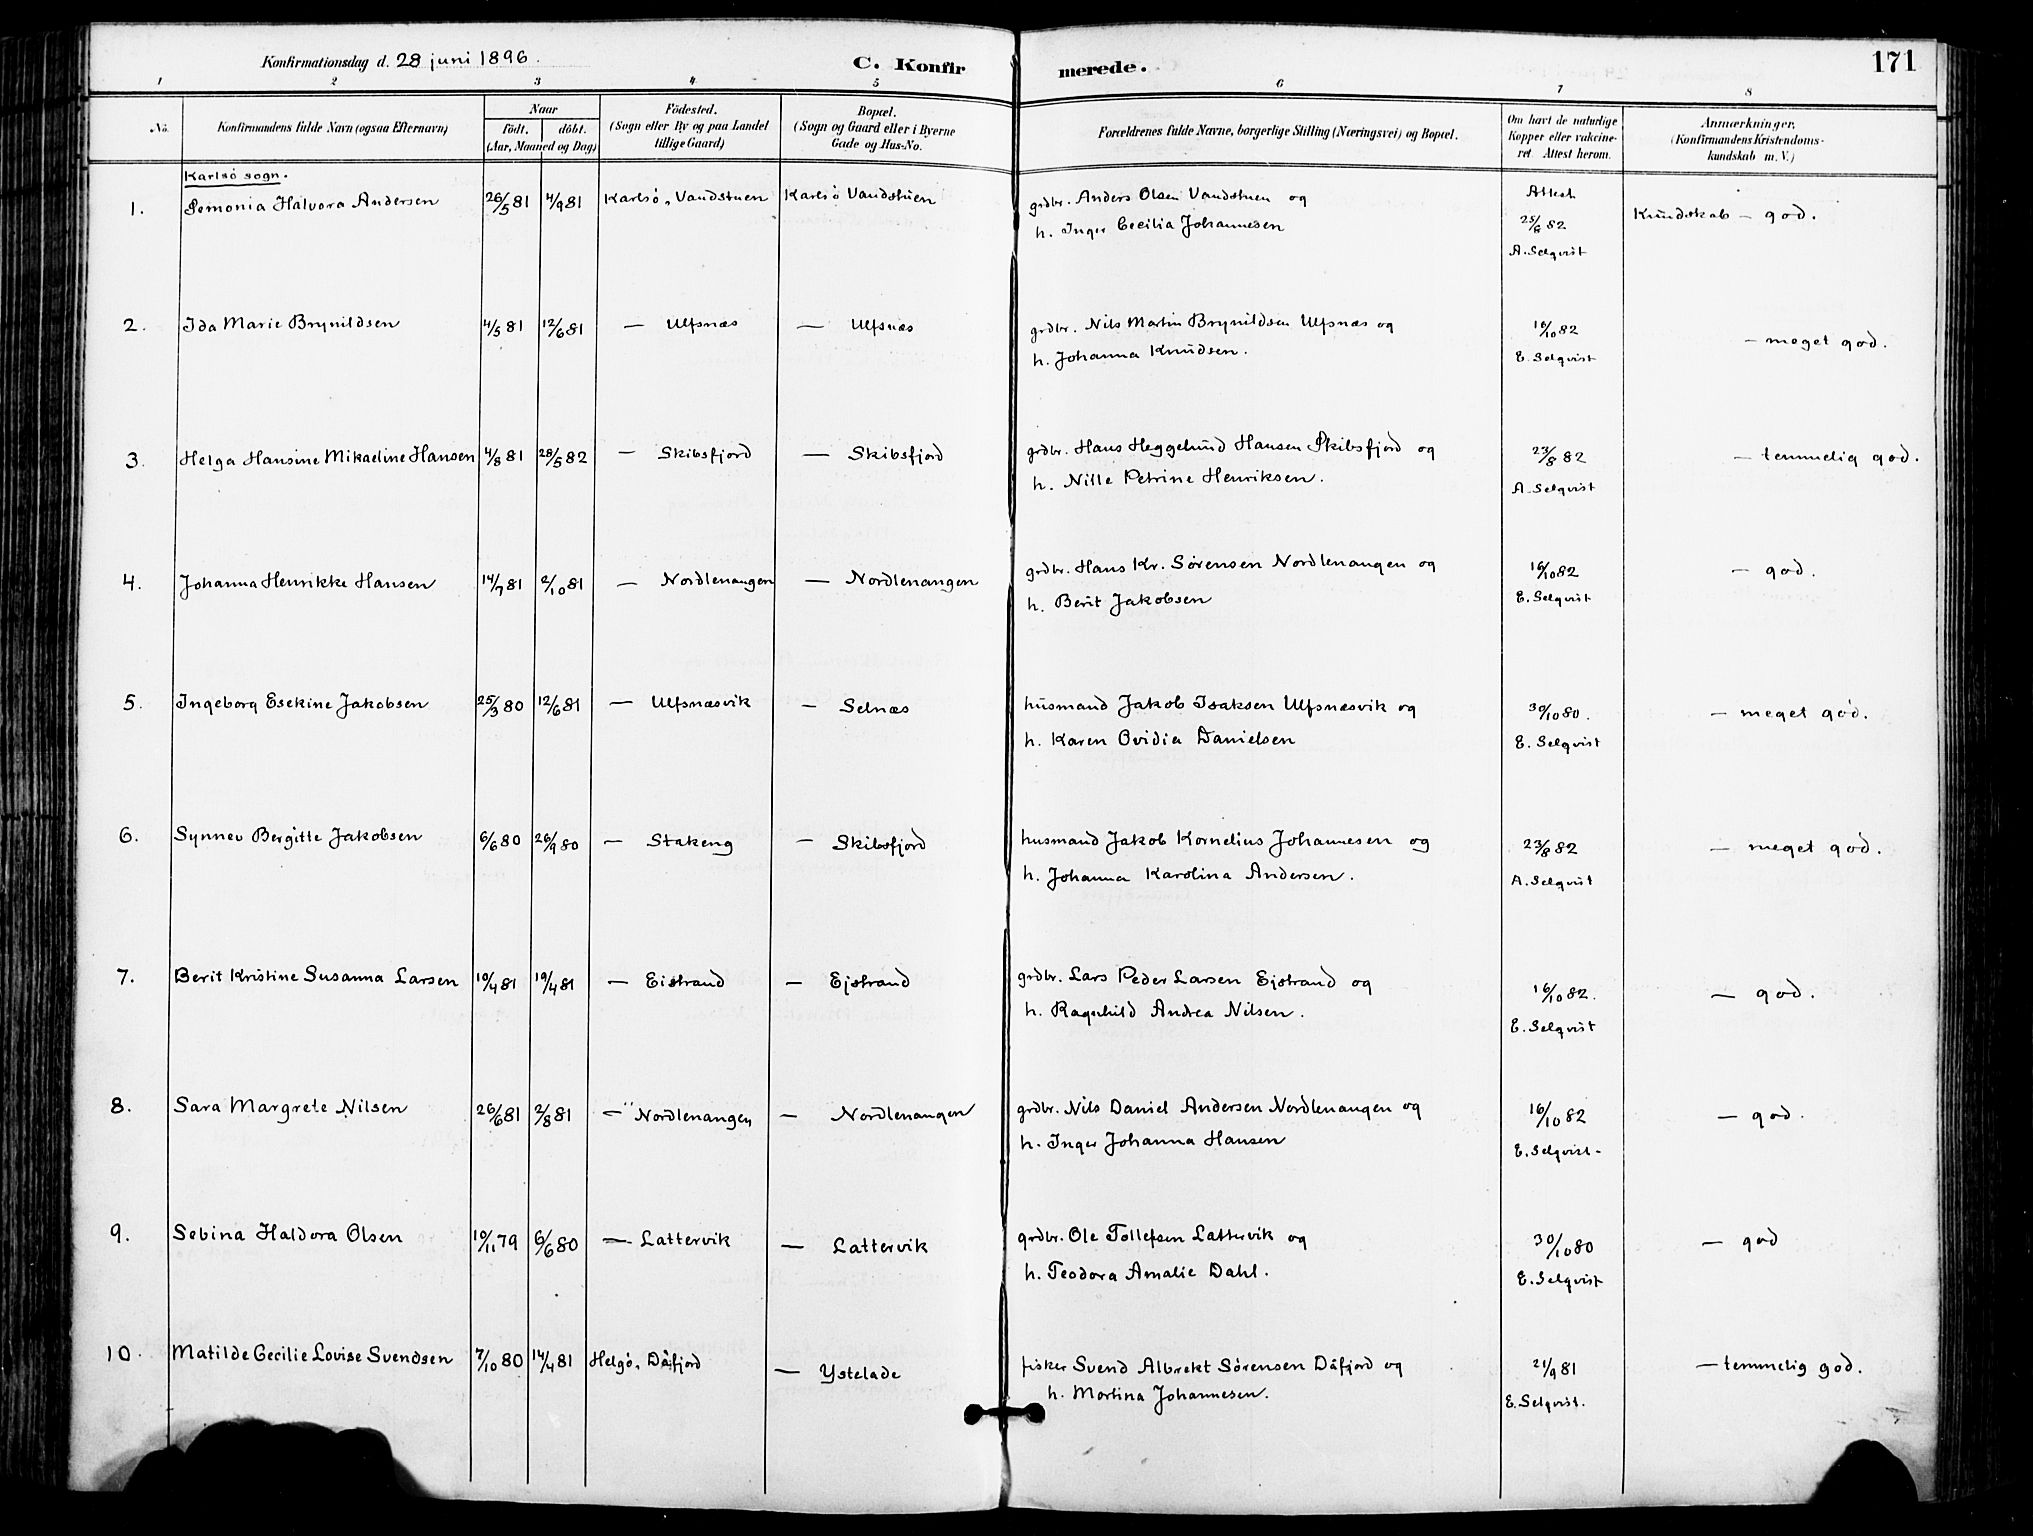 Konfirmationsdag d. 28 juni 1896. C. Konfirmerede. 171
1 2 3 4 5 6 7 8
No. Konfirmandens fulde Navn (ogsaa Efternavn) Naar födt. döbt. (Aar, Maaned og Dag) Födested. (Sogn eller By og paa Landet tillige Gaard) Bopæl. (Sogn og Gaard eller i Byerne Gade og Hus-No. Forældrenes fulde Navne, borgerlige Stilling (Næringsvei) og Bopæl. Om havt de naturlige Kopper eller vakcineret. Attest herom. Anmærkninger, (Konfirmandens Kristendomskundskab m. V.)
Karlsö sogn.
1. Pemonia Halvora Andersen 26/5 81 4/9 81 Karlsö, Vandstuen Karlsö Vandstuen grdbr. Anders Olsen Vandstuen og Attest
h. Inger Cecilia Johannesen 25/8 82 Kundskab - god.
A. Selqvist
2. Ida Marie Brynildsen 4/5 81 12/6 81 — Ulfsnæs — Ulfsnæs grdbr. Nils Martin Brynildsen Ulfsnæs og 16/10 82
h. Johanna Knudsen. E. Selqvist - meget god.
3. Helga Hansine Mikaeline Hansen 4/8 81 28/5 82 — Skibsfjord — Skibsfjord grdbr. Hans Heggelund Hansen Skibsfjord og 23/8 82 — temmelig god.
h. Nille Petrine Henriksen. A. Selqvist
4. Johanna Henrikke Hansen 14/7 81 2/10 81 — Nordlenangen — Nordlenangen grdbr. Hans Kr. Sørensen Nordlenangen og 16/10 82 — god.
h. Berit Jakobsen E. Selqvist
5. Ingeborg Esekine Jakobsen 25/3 80 12/6 81 — Ulfsnæsvik — Selnæs husmand Jakob Isaksen Ulfsnæsvik og 30/10 80. — meget god.
h. Karen Ovidia Danielsen E. Selqvist
6. Synnev Bergitte Jakobsen 6/6 80 26/9 80 — Stakeng — Skibsfjord husmand Jakob Kornelius Johannesen og 23/8 82 — meget god.
h. Johanna Karolina Andersen. A. Selqvist
7. Berit Kristine Susanna Larsen 10/4 81 19/4 81 — Eistrand — Ejstrand grdbr. Lars Peder Larsen Ejstrand og 16/10 82. — god.
h. Ragnhild Andrea Nilsen. E. Selqvist
8. Sara Margrete Nilsen 26/6 81 2/8 81 — Nordlenangen — Nordlenangen grdbr. Nils Daniel Andersen Nordlenangen og 16/10 82 — god.
h. Inger Johanna Hansen E. Selqvist
9. Sebina Haldora Olsen 10/11 79 6/6 80 — Lattervik — Lattervik grdbr. Ole Tollefsen Lattervik og 30/10 80 — god
h. Teodora Amalie Dahl. E. Selqvist
10. Matilde Cecilie Lovise Svendsen 7/10 80 14/4 81 Helgö, Dåfjord — Ystelade fisker Svend Albrekt Sørensen Dåfjord og 21/9 81 — temmelig god.
h. Martina Johannesen. E. Selqvist.